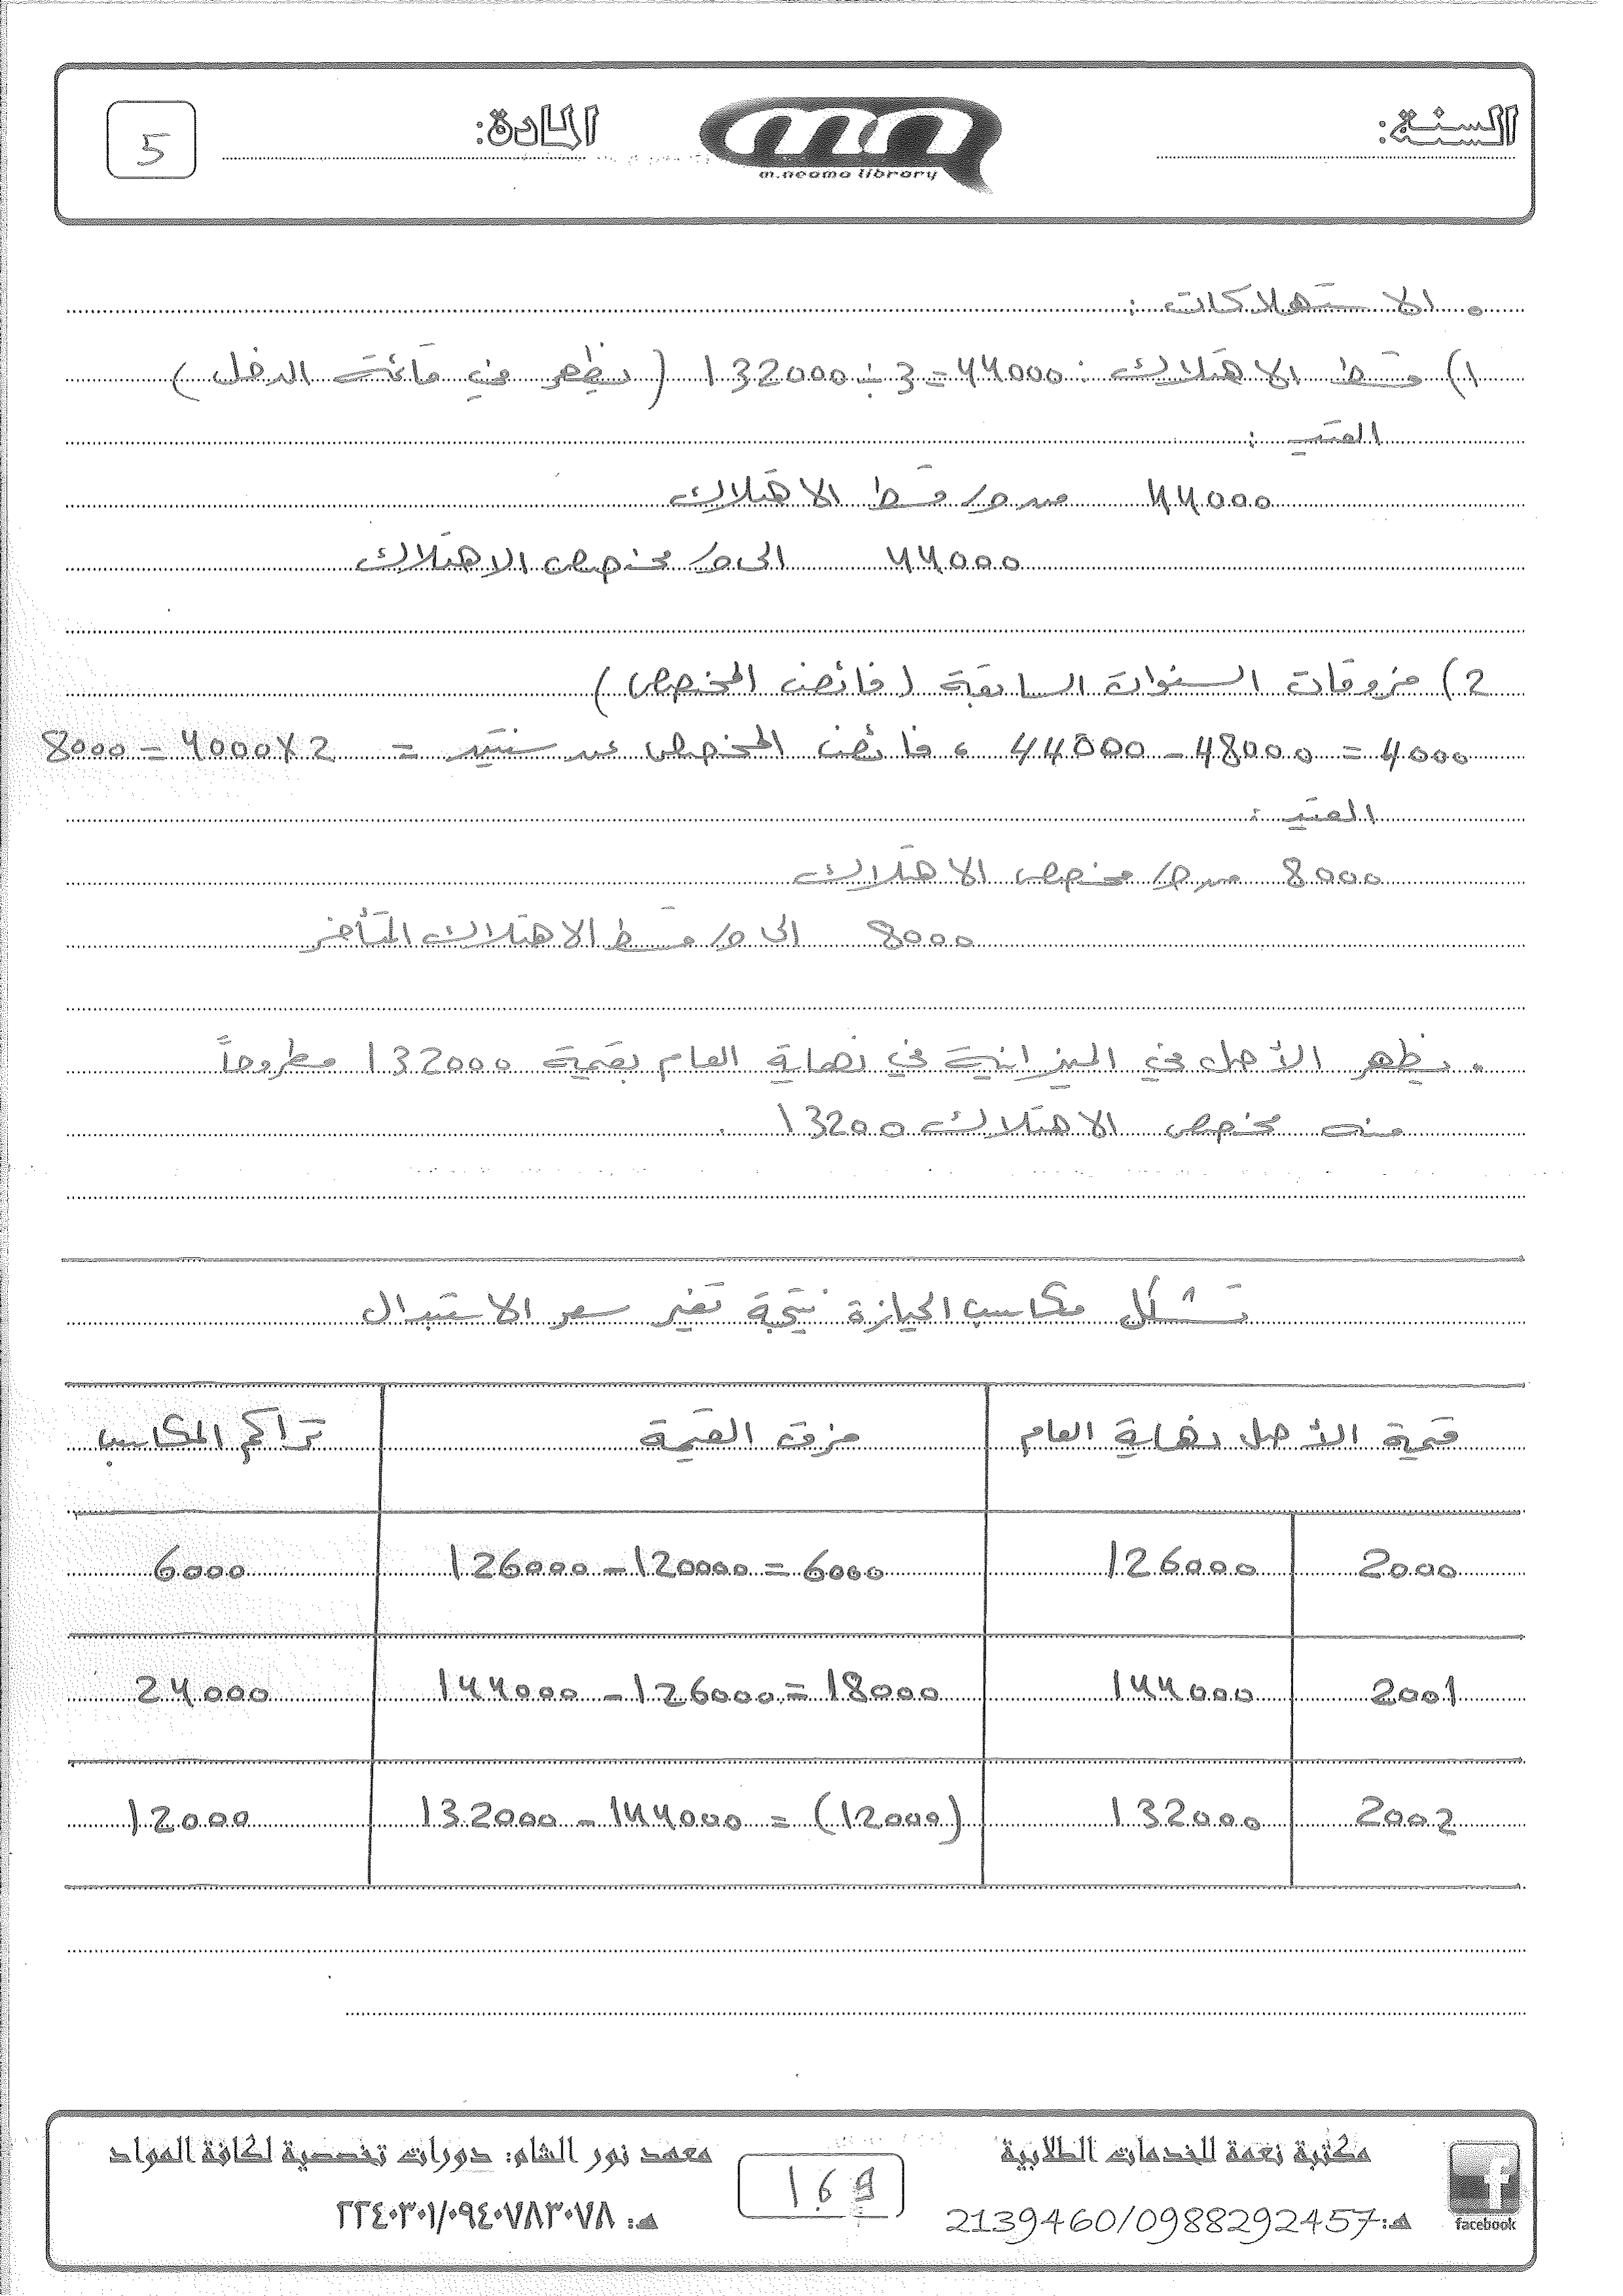 السنة: المادة: 5
m.neama library
• الاستهلاكات :
1) قسط الاهتلاك : 44000 = 3 ÷ 132000 ( يظهر في قائمة الدخل )
القيد :
44000 من ح/ قسط الاهتلاك
44000 الى ح/ مخصص الاهتلاك
2) فروقات السنوات السابقة ( فائض المخصص )
4000 = 48000 - 44000 ، فائض المخصص عن سنتين = 4000 X 2 = 8000
القيد :
8000 من ح/ مخصص الاهتلاك
8000 الى ح/ قسط الاهتلاك المتأخر
• يظهر الأصل في الميزانية في نهاية العام بقيمة 132000 مطروحاً
منه مخصص الاهتلاك 13200 .
تشكل مكاسب الحيازة نتيجة تغير سعر الاستبدال
قيمة الأصل نهاية العام فرق القيمة تراكم المكاسب
2000 126000 126000 - 120000 = 6000 6000
2001 144000 144000 - 126000 = 18000 24000
2002 132000 132000 - 144000 = (12000) 12000
مكتبة نعمة للخدمات الطلابية معهد نور الشام: دورات تخصصية لكافة المواد
facebook هـ: 2139460/0988292457 169 هـ: ٢٢٤٠٣٠١/٠٩٤٠٧٨٣٠٧٨